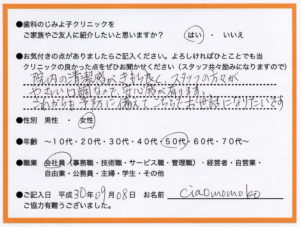 ●歯科のじみよ子クリニックを
ご家族やご友人に紹介したいと思いますか? はい ・ いいえ
●お気付きの点がありましたらご記入ください。よろしければひとことでも当
クリニックの良かった点をぜひお聞かせください(スタッフ共々励みになりますので)
院内の清潔感がきもち良く、スタッフの方々が
やさしい口調なので、安心感が有ります。
これからも予防に備えてこちらでお世話になりたいです
●性別 男性 ・ 女性
●年齢 ~10代・20代・30代・40代・50代・60代・70代~
●職業 会社員(事務職・技術職・サービス職・管理職)・経営者・自営業・
自由業・公務員・主婦・学生・その他
●ご記入日 平成30年09月08日 お名前 ciaomomoko
ご協力有難うございました。